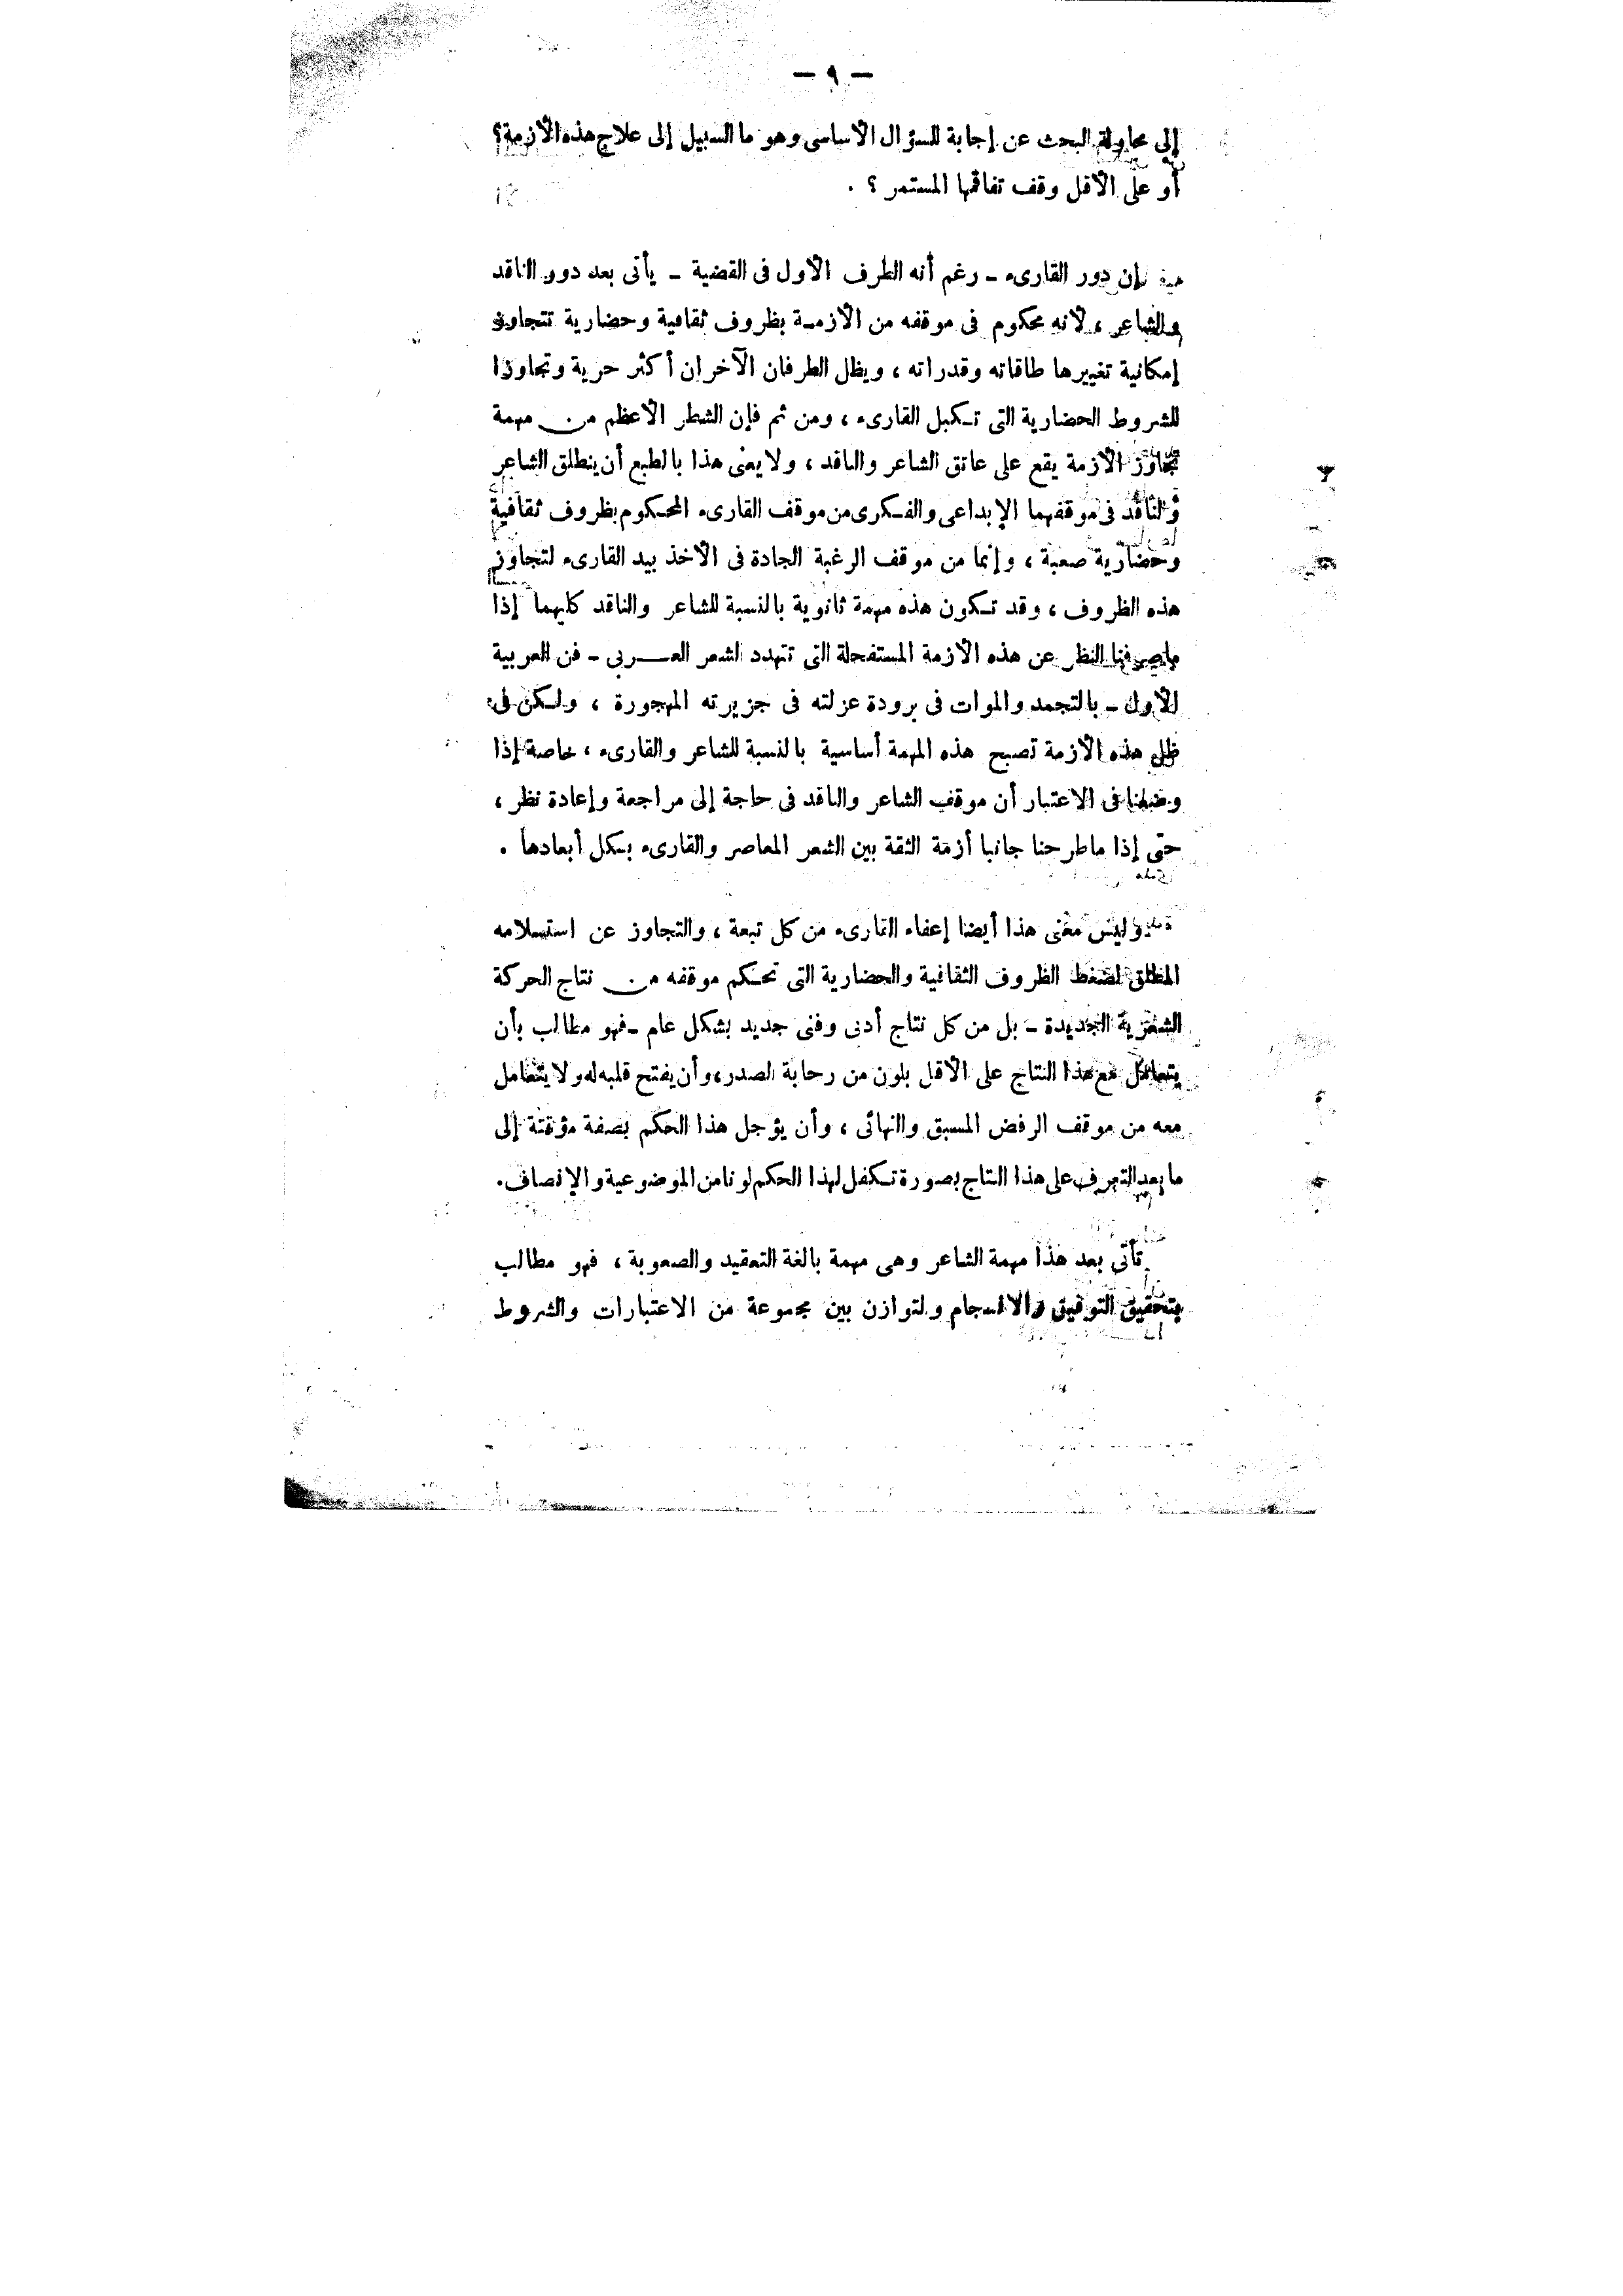 — ٩ —
إلى محاولة البحث عن إجابة للسؤال الأساسى وهو ما السبيل إلى علاج هذه الأزمة؟
أو على الأقل وقف تفاقمها المستمر ؟ .
إن دور القارىء ــ رغم أنه الطرف الأول فى القضية ــ يأتى بعد دور الناقد
والشاعر ، لأنه محكوم فى موقفه من الأزمـة بظروف ثقافية وحضارية تتجاوز
إمكانية تغييرها طاقاته وقدراته ، ويظل الطرفان الآخران أكثر حرية وتجاوزا
للشروط الحضارية التى تـكبل القارىء ، ومن ثم فإن الشطر الأعظم من مهمة
تجاوز الأزمة يقع على عاتق الشاعر والناقد ، ولا يعنى هذا بالطبع أن ينطلق الشاعر
والناقد فى موقفهما الإبداعى والفـكرى من موقف القارىء المحـكوم بظروف ثقافية
وحضارية صعبة ، وإنما من موقف الرغبة الجادة فى الأخذ بيد القارىء لتجاوز
هذه الظروف ، وقد تـكون هذه مهمة ثانوية بالنسبة للشاعر والناقد كليهما إذا
ما صرفنا النظر عن هذه الأزمة المستفحلة التى تتهدد الشعر العـــربى ــ فن العربية
الأول ــ بالتجمد والموات فى برودة عزلته فى جزيرته المهجورة ، ولـكن فى
ظل هذه الأزمة تصبح هذه المهمة أساسية بالنسبة للشاعر والقارىء ، خاصة إذا
وضعنا فى الاعتبار أن موقف الشاعر والناقد فى حاجة إلى مراجعة وإعادة نظر ،
حتى إذا ما طرحنا جانبا أزمة الثقة بين الشعر المعاصر والقارىء بـكل أبعادها .
وليس معنى هذا أيضا إعفاء القارىء من كل تبعة ، والتجاوز عن استسلامه
المطلق لضغط الظروف الثقافية والحضارية التى تحـكم موقفه من نتاج الحركة
الشعرية الجديدة ــ بل من كل نتاج أدبى وفنى جديد بشكل عام ــ فهو مطالب بأن
يتعامل مع هذا النتاج على الأقل بلون من رحابة الصدر، وأن يفتح قلبه له ولا يتعامل
معه من موقف الرفض المسبق والنهائى ، وأن يؤجل هذا الحكم بصفة مؤقتة إلى
ما بعد التعرف على هذا النتاج بصورة تـكفل لهذا الحكم لونا من الموضوعية والإنصاف.
تأتى بعد هذا مهمة الشاعر وهى مهمة بالغة التعقيد والصعوبة ، فهو مطالب
بتحقيق التوفيق والانسجام والتوازن بين مجموعة من الاعتبارات والشروط